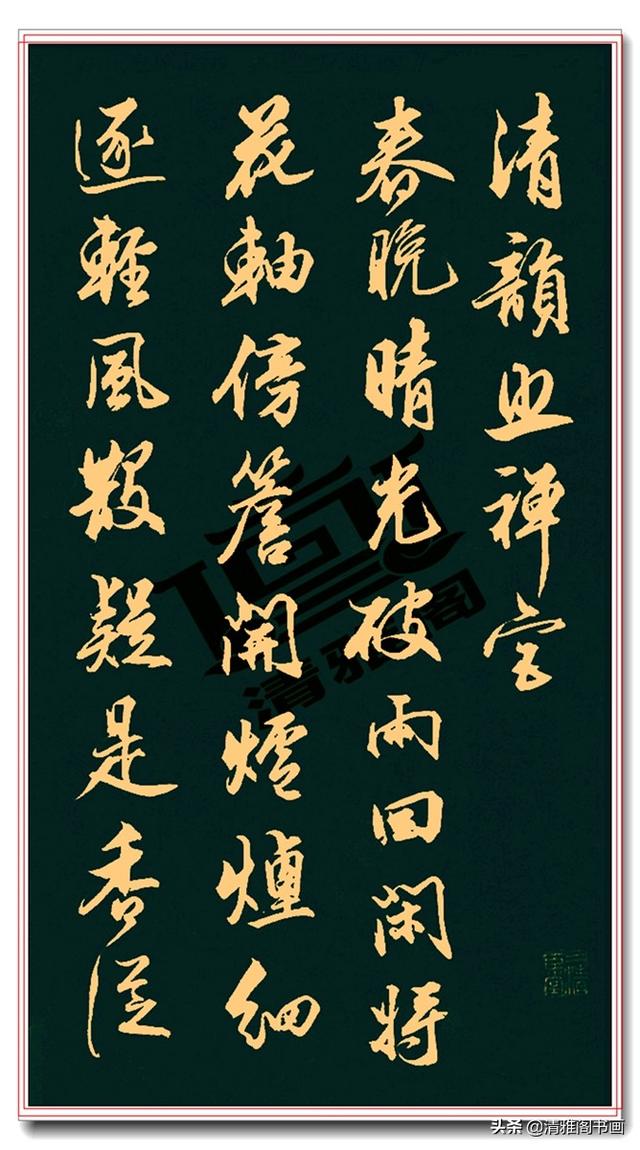 清韻禅
春晚晴光破雨回閑將
花軸傍簷開爐煙細
逐輕風散疑是香從
清雅阁
头条 @清雅阁书画